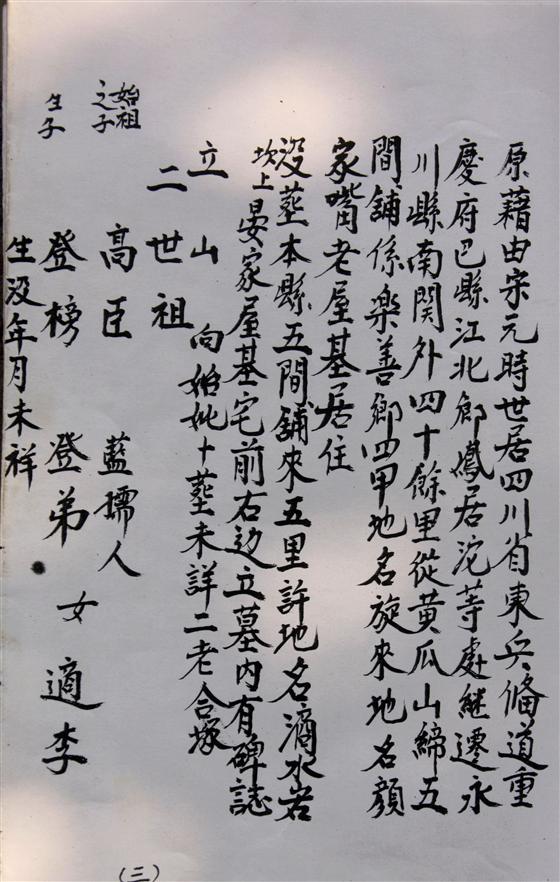 原藉由宋元時世居四川省東兵俻道重
慶府巴縣江北鄉鳳居沱等處継遷永
川縣南関外四十餘里從黄瓜山締五
間舖係樂善鄉四甲地名旋來地名顔
家嘴老屋基居住
没葬本縣五間舖來五里許地名滴水岩
坎上晏家屋基宅前右边立墓内有碑誌
立山向始妣卜葬未詳二老合塚
二世祖
始祖之子高臣藍孺人
生子登榜登弟女適李
生没年月未祥
(三)